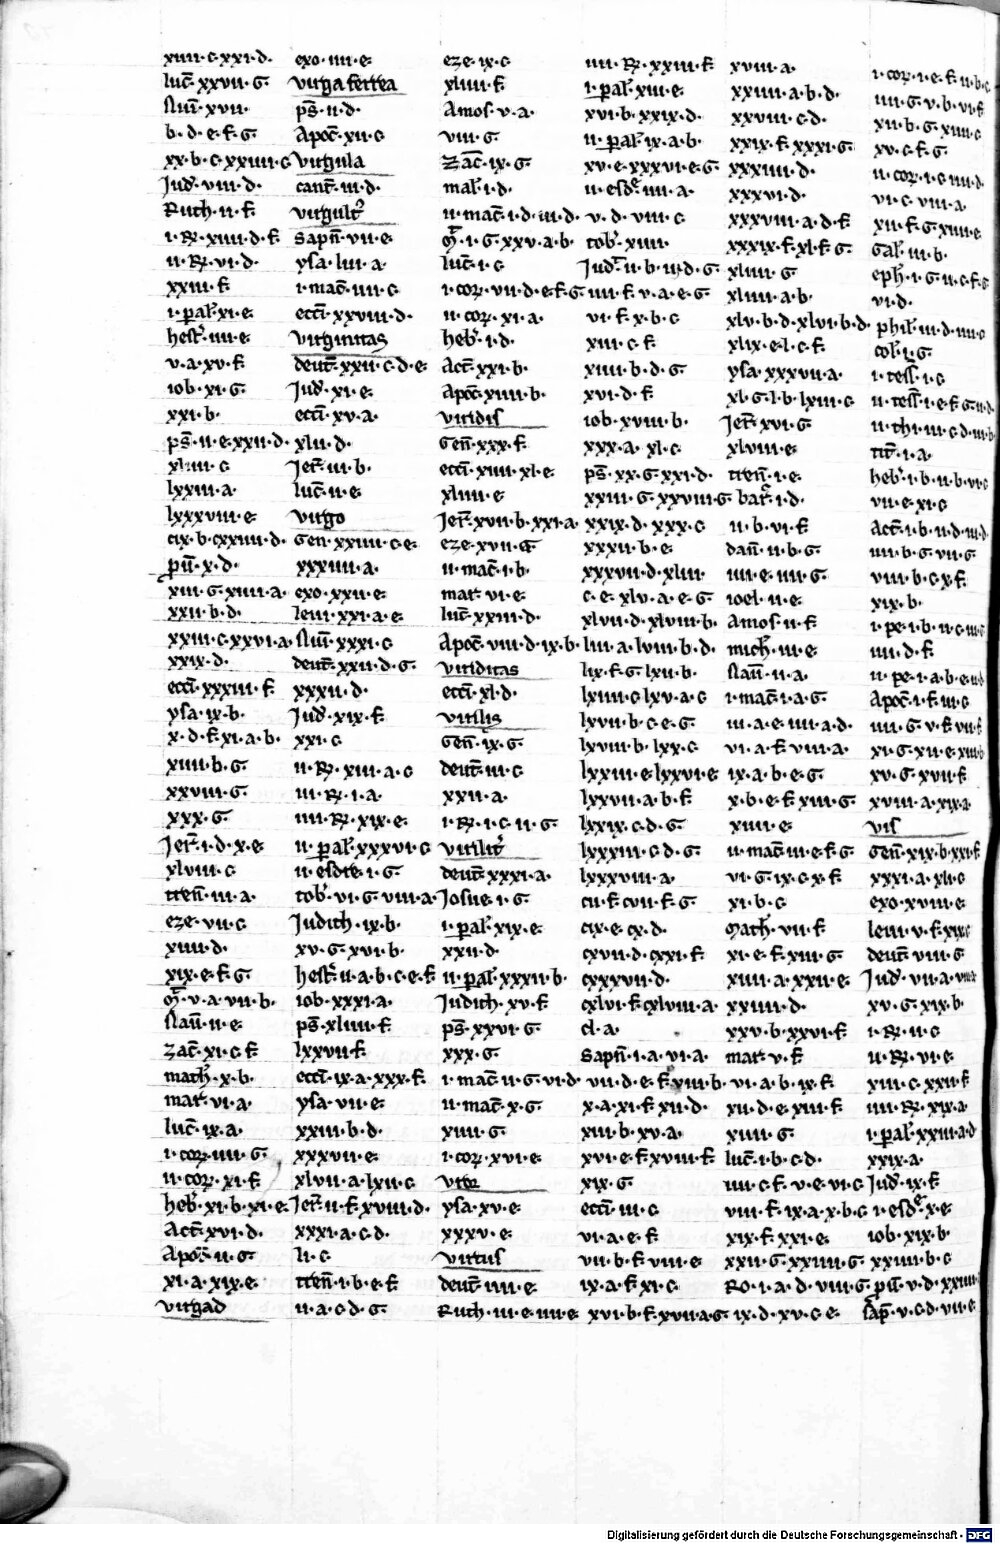 xiiii·c·xxi·d·
luc̄·xxvii·G·
Nuɱ·xvii·
b·d·e·f·G·
xx·b·c·xxiiii·c
Jud̛·viii·d·
Ruth·ii·f·
i·R̛·xiiii·d·f
ii·R̛·vi·d·
xxiii·f
i·paral̛·xi·e·
hest̛·iiii·e·
v·a·xv·f
iob·xi·G
xxi·b·
ps̄·ii·e·xxii·d·
xliiii·c
lxxiii·a·
lxxxviii·e
cix·b·cxxiiii·d·
pu̅·x·d·
xiii·G·xiiii·a·
xxii·b·d·
xxiii·c·xxvi·a·
xxix·d·
eccī·xxxiii·f
ysa·ix·b·
x·d·f·xi·a·b·
xiiii·b·G
xxviii·G
xxx·G
Jer̄·i·d·x·e
xlviii·c
tren̄·iii·a·
eze·vii·c
xiiii·d·
xix·e·f·G
v·a·vii·b·
Nau̅·ii·e·
zac̄·xi·c·f
math̛·x·b·
mar̛·vi·a·
luc̄·ix·a·
i·cor̛·iiii·G
ii·cor̛·xi·f·
heb̛·xi·b·xi·e·
Act̄·xvi·d·
Apoc̄·ii·G
xi·a·xix·e·
virgad
exo·iiii·e
virga ferrea
ps̄·ii·d·
Apoc̄·xii·c
virgula
cant̄·iii·d·
virgult̛
sapn̄·vii·e·
ysa·liii·a·
i·mac̄·iiii·c
eccī·xxviii·d·
virginitas
deut̄·xxii·c·d·e·
Jud̛·xi·e·
eccī·xv·a·
xlii·d·
Jer̄·iii·b·
luc̄·ii·e·
virgo
Gen·xxiiii·c·e·
xxxiiii·a·
exo·xxii·e·
levi·xxi·a·e·
Nuɱ·xxxi·c
deut̄·xxii·d·G·
xxxii·d·
Jud̛·xix·f
xxi·c
ii·R̛·xiii·a·c
iii·R̛·i·a·
iiii·R̛·xix·e·
ii·paral̛·xxxvi·c
ii·esdre·i·G
tob̛·vi·G·viii·a·
Judith·ix·b·
xv·G·xvi·b·
hest̛·ii·a·b·c·e·f
iob·xxxi·a·
ps̄·xliiii·f
lxxvii·f
eccī·ix·a·xxx·f
ysa·vii·e·
xxiii·b·d·
xxxvii·e·
xlvii·a·lxii·c
Jer̄·ii·f·xviii·d·
xxxi·a·c·d·
li·c
tren̄·i·b·e·f
ii·a·c·d·G
eze·ix·c
xliiii·f
Amos·v·a·
viii·G
Zac̄·ix·G
mal̛·i·d·
ii·mac̄·i·d·iii·d·
i·G·xxv·a·b·
luc̄·i·c
i·cor̛·vii·d·e·f·G
ii·cor̛·xi·a·
heb̛·i·d·
Act̄·xxi·b·
Apoc̄·xiiii·b·
viridis
Gen̄·xxx·f
eccī·xiiii·xl·e·
xliiii·e
Jer̄·xvii·b·xxi·a·
eze·xvii·G
ii·mac̄·i·b·
mar·vi·e·
luc̄·xxiii·d·
Apoc̄·viii·d·ix·b·
viriditas
eccī·xl·d·
virilis
Gen̄·ix·G
deut̄·iii·c
xxii·a·
i·R̛·i·c·ii·G
virilit̛
deut̄·xxxi·a·
Josue·i·G
i·paral̛·xix·e·
xxii·d·
ii·paral̛·xxxii·b·
Judich·xv·f
ps̄·xxvi·G
xxx·G
i·mac̄·ii·G·vi·d·
ii·mac̄·x·G
xiiii·G
i·cor̛·xvi·e·
viror
ysa·xv·e·
xxxv·e·
virtus
deut̄·iiii·e·
Ruth·iii·e·iiii·e
iiii·R̛·xxiii·f
i·paral̛·xiii·e·
xvi·b·xxix·d·
ii·paral̛·ix·a·b·
xv·e·xxxvi·e·G
ii·esd̛·iiii·a·
v·d·viii·c
tob̛·xiiii·
Jud̛·ii·b·iii·d·G
iiii·f·v·a·e·G
vi·f·x·b·c
xiii·c·f
xiiii·b·d·G
xvi·d·f·
iob·xviii·b·
xxx·a·xl·c
ps̄·xx·G·xxi·d·
xxiii·G·xxviii·G
xxix·d·xxx·c
xxxii·b·e·
xxxvii·d·xliii·
c·e·xlv·a·e·G
xlvii·d·xlviii·b·
liii·a·lviii·b·d·
lix·f·G·lxii·b·
lxiiii·c·lxv·a·c
lxvii·b·c·e·G
lxviii·b·lxx·c
lxxiii·e·lxxvi·e
lxxvii·a·b·f
lxxix·c·d·G
lxxxiii·c·d·G
lxxxviii·a·
cii·f·cvii·f·G
cix·e·cx·d·
cxvii·d·cxxi·f
cxxxvii·d·
cxlvi·f·cxlviii·a
cl·a·
Sapn̄·i·a·vi·a·
vii·d·e·f·xiii·b·
x·a·xi·f·xii·d·
xiii·b·xv·a·
xvi·e·f·xviii·f
xix·G
eccī·iii·c
vi·a·e·f
vii·b·f·viii·e
ix·a·f·xi·c
xvi·b·f·xvii·a·G
xviii·a·
xxiiii·a·b·d·
xxviii·c·d·
xxix·f·xxxi·G
xxxiiii·d·
xxxvi·d·
xxxviii·a·d·f
xxxix·f·xl·f·G
xliii·G
xliiii·a·b·
xlv·b·d·xlvi·b·d·
xlix·e·l·c·f
ysa·xxxvii·a·
xl·G·l·b·lxiii·c
Jer̄·xvi·G
xlviii·e·
tren̄·i·e·
bar̛·i·d·
ii·b·vi·f
dan̄·ii·b·G
iii·e·iiii·G
ioel·ii·e·
Amos·ii·f
mich̛·iii·e
Nau̅·ii·a·
i·mac̄·i·a·G
iii·a·e·iiii·a·d·
vi·a·f·viii·a·
ix·a·b·e·G
x·b·e·f·xiii·G
xiiii·e
ii·mac̄·iii·e·f·G
vi·G·ix·c·x·f
xi·b·c
Math̛·vii·f
xi·e·f·xiii·G
xiiii·a·xxii·e
xxiiii·d·
xxv·b·xxvi·f
mar·v·f
vi·a·b·ix·f
xii·d·e·xiii·f
xiiii·G
luc̄·i·b·c·d·
iiii·c·f·v·e·vi·c
viii·f·ix·a·x·b·c
xix·f·xxi·e
xxii·G·xxiiii·G
Ro·i·a·d·viii·G
ix·d·xv·c·e
i·cor̛·i·e·f·ii·b·c
iiii·G·v·b·vi·f
xii·b·G·xiiii·c
xv·c·f·G
ii·cor̛·i·c·iiii·d
vi·c·viii·a
xii·f·G·xiii·e
Gal̛·iii·b·
eph̛·i·G·ii·c·f·G
vi·d·
phil̛·iii·d·iiii·c
col̛·i·G
i·tess̄·i·c
ii·tess̄·i·e·f·G·ii·d
ii·thi·iii·c·d·iii·b
tit̄·i·a·
heb̛·i·b·ii·b·vi·c
vii·e·xi·c
Act̄·i·b·ii·d·iii·d
iiii·b·G·vii·G
viii·b·c·x·f
xix·b·
i·pe·i·b·ii·c·iii·c
iiii·d·f
ii·pe·i·a·b·e·ii·d
Apoc̄·i·f·iii·c
iiii·G·v·f·vii·f
xi·G·xii·e·xiii·b
xv·G·xvii·f
xviii·a·xix·a
vis
Gen̄·xix·b·xxi·f
xxxi·a·xli·c
exo·xviii·e
levi·v·f·xix·c
deut̄·viii·G
Jud̛·vii·a·
xv·G·xix·b
i·R̛·ii·c
ii·R̛·vi·e
xiii·c·xxii·f
iiii·R̛·xix·a
i·paral̛·xxiii·a·d
xxix·a·
Jud̛·ix·f
i·esd̛·x·e
iob·xix·b·
xxiiii·b·c
pu̅·v·d·xxiiii
Sap̄·v·c·d·vii·e
Digitalisierung gefördert durch die Deutsche Forschungsgemeinschaft - DFG